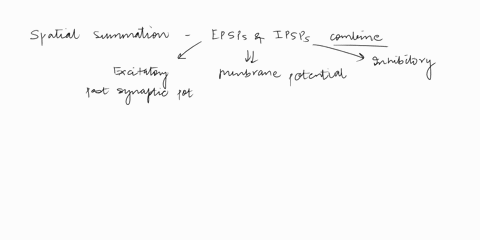 Spatial Summation - EPSPs & IPSPs combine
Excitatory membrane potential inhibitory
post synaptic pot